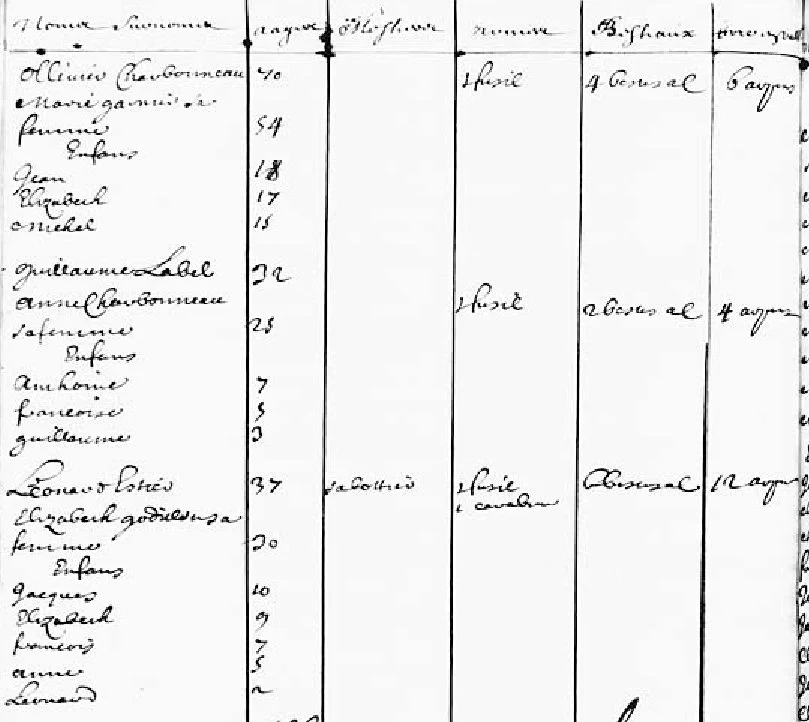 Noms Surnoms aages Mestier Bestiaux
Ollivier Charbonneau 70 1 fusil 4 bestes a l 6 arpens
Marie garnier sa
femme 54
Enfans
Jean 18
Elizabeth 17
Michel 15
guillaume Label 32
anne Charbonneau 1 fusil 2 bestes a l 4 arpens
sa femme 25
Enfans
Anthoine 7
francoise 5
guillaume 3
Léonard Ethier 37 sabottier 1 fusil bestes a l 12 arpens
1 cavalle
Elizabeth godillon sa
femme 30
Enfans
Jacques 10
Elizabeth 9
francois 7
anne 5
Leonard 2